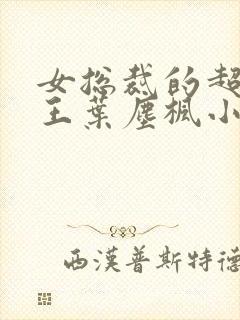 女総裁的超
王葉塵楓小
西漢普斯特德